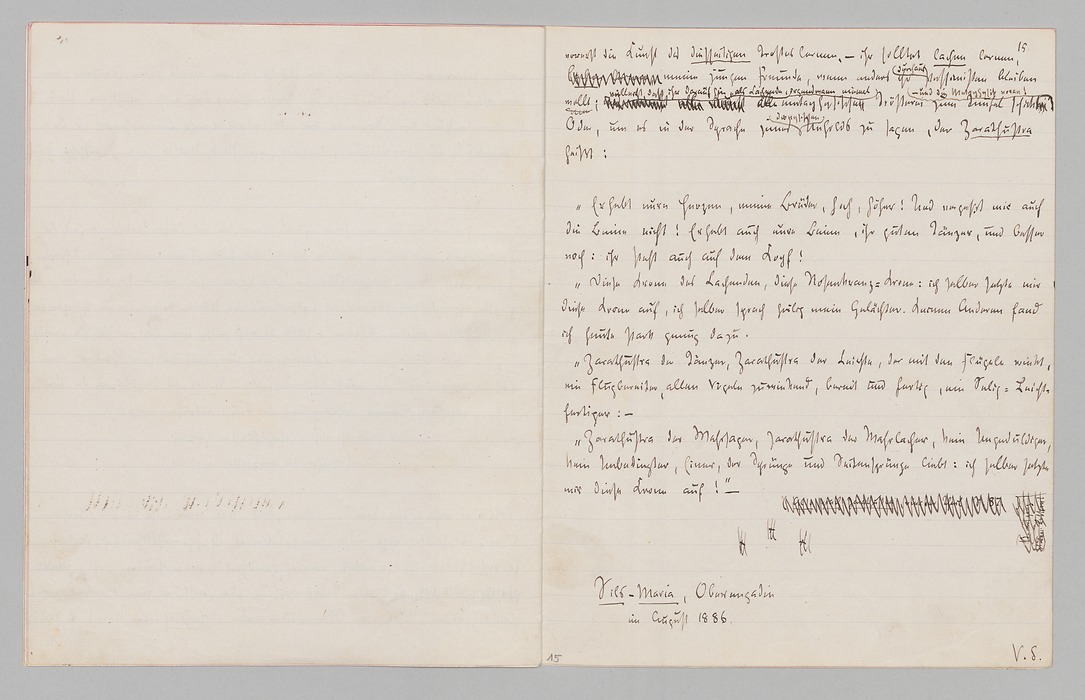 15
vorerst die Kunst des diesseitigen Trostes lernen, – ihr solltet lachen lernen,
meine jungen Freunde, wenn anders ihr durchaus Pessimisten bleiben
wollt; vielleicht, daß ihr darauf hin, als Lachende, irgendwann einmal alle metaphysische Trösterei zum Teufel schickt – und die Metaphysik voran!
Oder, um es in der Sprache jenes dionysischen Unholds zu sagen, der Zarathustra
heißt:
„Erhebt eure Herzen, meine Brüder, hoch, höher! Und vergeßt mir auch
die Beine nicht! Erhebt auch eure Beine, ihr guten Tänzer, und besser
noch: ihr steht auch auf dem Kopf!
„Diese Krone des Lachenden, diese Rosenkranz=Krone: ich selber setzte mir
diese Krone auf, ich selber sprach heilig mein Gelächter. Keinen Anderen fand
ich heute stark genug dazu.
„Zarathustra der Tänzer, Zarathustra der Leichte, der mit den Flügeln winkt,
ein Flugbereiter, allen Vögeln zuwinkend, bereit und fertig, ein Selig=Leicht-
fertiger: –
„Zarathustra der Wahrsager, Zarathustra der Wahrlacher, kein Ungeduldiger,
kein Unbedingter, Einer, der Sprünge und Seitensprünge liebt: ich selber setzte
mir diese Krone auf!" –
Sils-Maria, Oberengadin
im August 1886.
15
V. S.